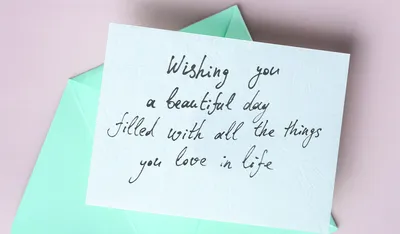 Wishing you
a beautiful day
filled with all the things
you love in life